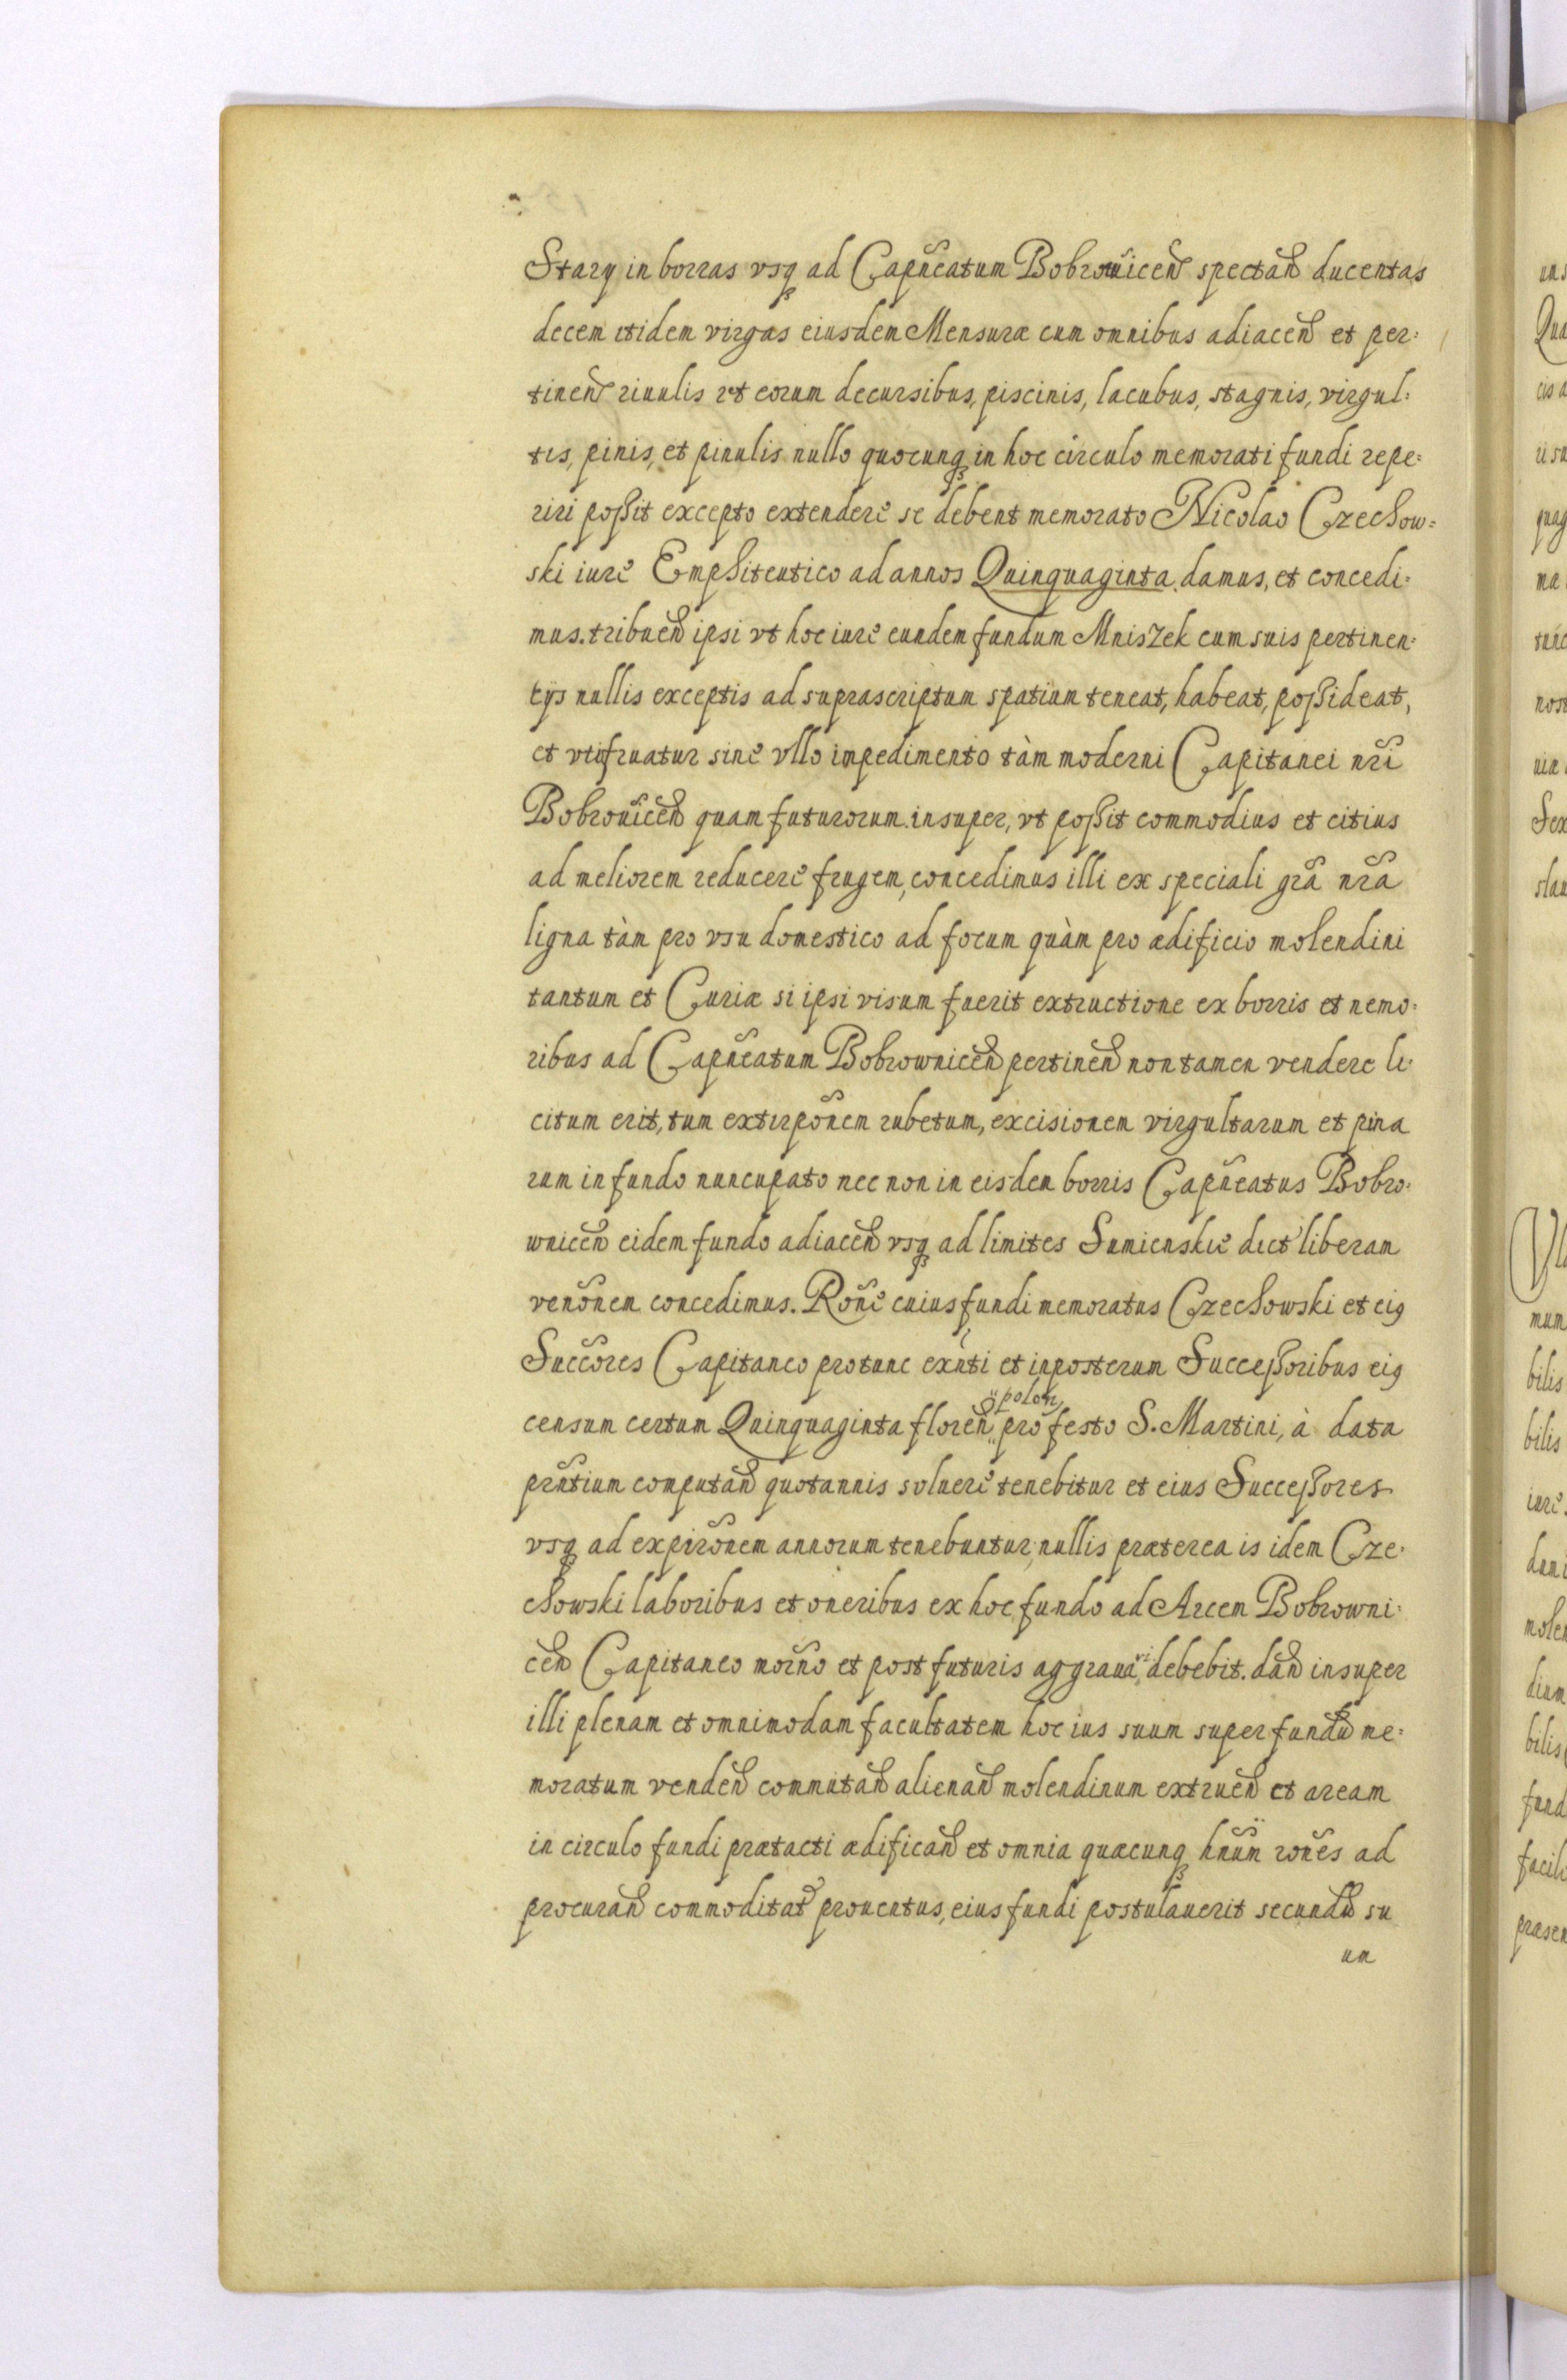 Stary in borras vsq₃ ad Capñeatum Bobrowicen̄ spectan̄ ducentas
decem itidem virgas eiusdem Mensuræ cum omnibus adiacen̄ et per:
tinen̄ riuulis et eorum decursibus, piscinis, lacubus, stagnis, virgul:
tis, pinis, et pinulis nullo quocunq₃ in hoc circulo memorati fundi repe:
riri poßit excepto extendere se debent memorato Nicolao Czechow=
ski iure Emphiteutico ad annos Quinquaginta damus, et concedi:
mus. tribuen̄ ipsi vt hoc iure eundem fundum Mniszek cum suis pertinen:
tijs nullis exceptis ad suprascriptum spatium teneat, habeat, poßideat,
et vtifruatur sine vllo impedimento tàm moderni Capitanei nr̃i
Bobrouicen̄ quam futurorum. insuper, vt poßit commodius et citius
ad meliorem reducere frugem, concedimus illi ex speciali gr̃a nr̃a
ligna tàm pro vsu domestico ad focum quàm pro ædificio molendini
tantum et Curiæ si ipsi visum fuerit extructione ex borris et nemo:
ribus ad Capñeatum Bobrownicen̄ pertinen̄ non tamen vendere li:
citum erit, tum extirpõnem rubetum, excisionem virgultarum et pina
rum in fundo nuncupato nec non in eisdem borris Capñeatus Bobro:
wnicen̄ eidem fundo adiacen̄ vsq₃ ad limites Sumienskie dict liberam
venõnem concedimus. Rõne cuius fundi memoratus Czechowski et eig
Succõres Capitaneo protunc exñti et inposterum Succeßoribus eig
censum certum Quinquaginta floren̄ polon pro festo S. Martini, à data
prñtium computan̄ quotannis soluere tenebitur et eius Succeßores
vsq₃ ad expirõnem annorum tenebuntur, nullis præterea is idem Cze:
chowski laboribus et oneribus ex hoc fundo ad Arcem Bobrowni:
cen̄ Capitaneo morño et post futuris aggrauari debebit. dan̄ insuper
illi plenam et omnimodam facultatem hoc ius suum super fundū me=
moratum venden̄ commutan̄ alienan̄ molendinum extruen̄ et aream
in circulo fundi prætacti ædifican̄ et omnia quæcunq₃ hñum rões ad
procuran̄ commoditat prouentus, eius fundi postulauerit secundū su
um